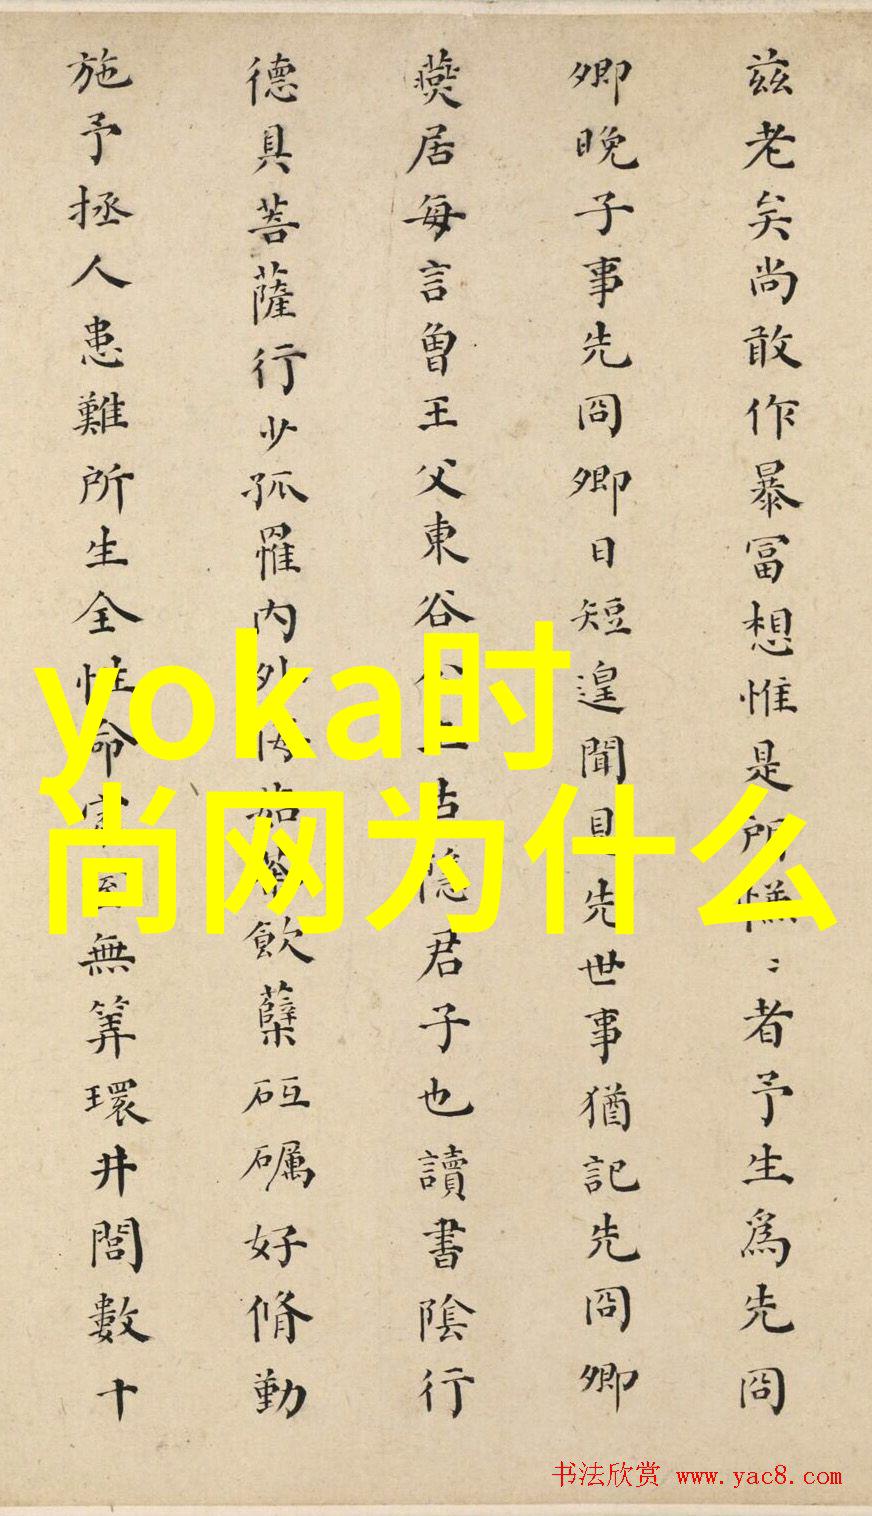 兹老矣尚敢作暴富想惟是所
〻者予生為先冏
卿晚予事先冏卿日短遑聞見先世事猶記先冏卿
燕居每言曾王父東谷公
隱君子也讀書陰行
德具菩薩行少孤罹内外
茹荼飲蘗砥礪好脩勤
施予拯人患難所生全性命家室無筭環井閭數十
yoka时
尚网为什么
书法欣赏 www.yac8.com